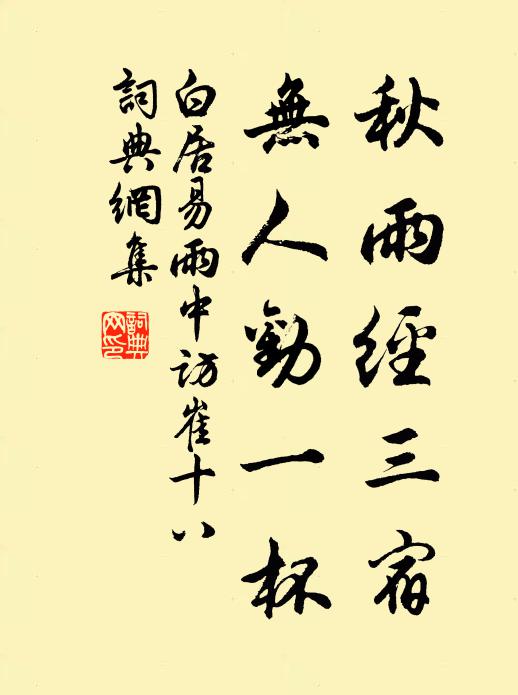 秋雨經三宿
無人勸一杯
白居易雨中訪崔十八
詞典網集
詞典網印